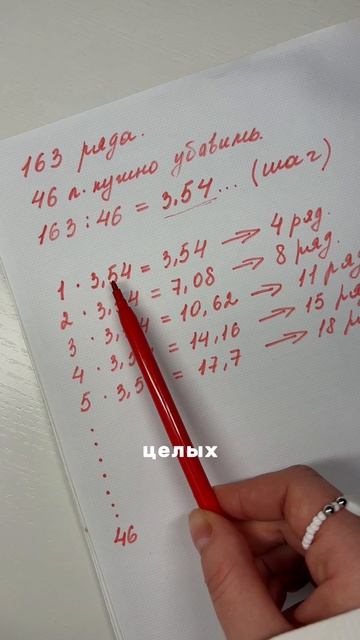 163 ряда.
46 п. нужно убавить.
163 : 46 = 3,54... (шаг)
1 · 3,54 = 3,54 → 4 ряд.
2 · 3,54 = 7,08 → 8 ряд.
3 · 3,4 = 10,62 → 11 ряд.
4 · 3,5 = 14,16 → 15 ря
5 · 3,5 = 17,7 → 18 р
46
целых